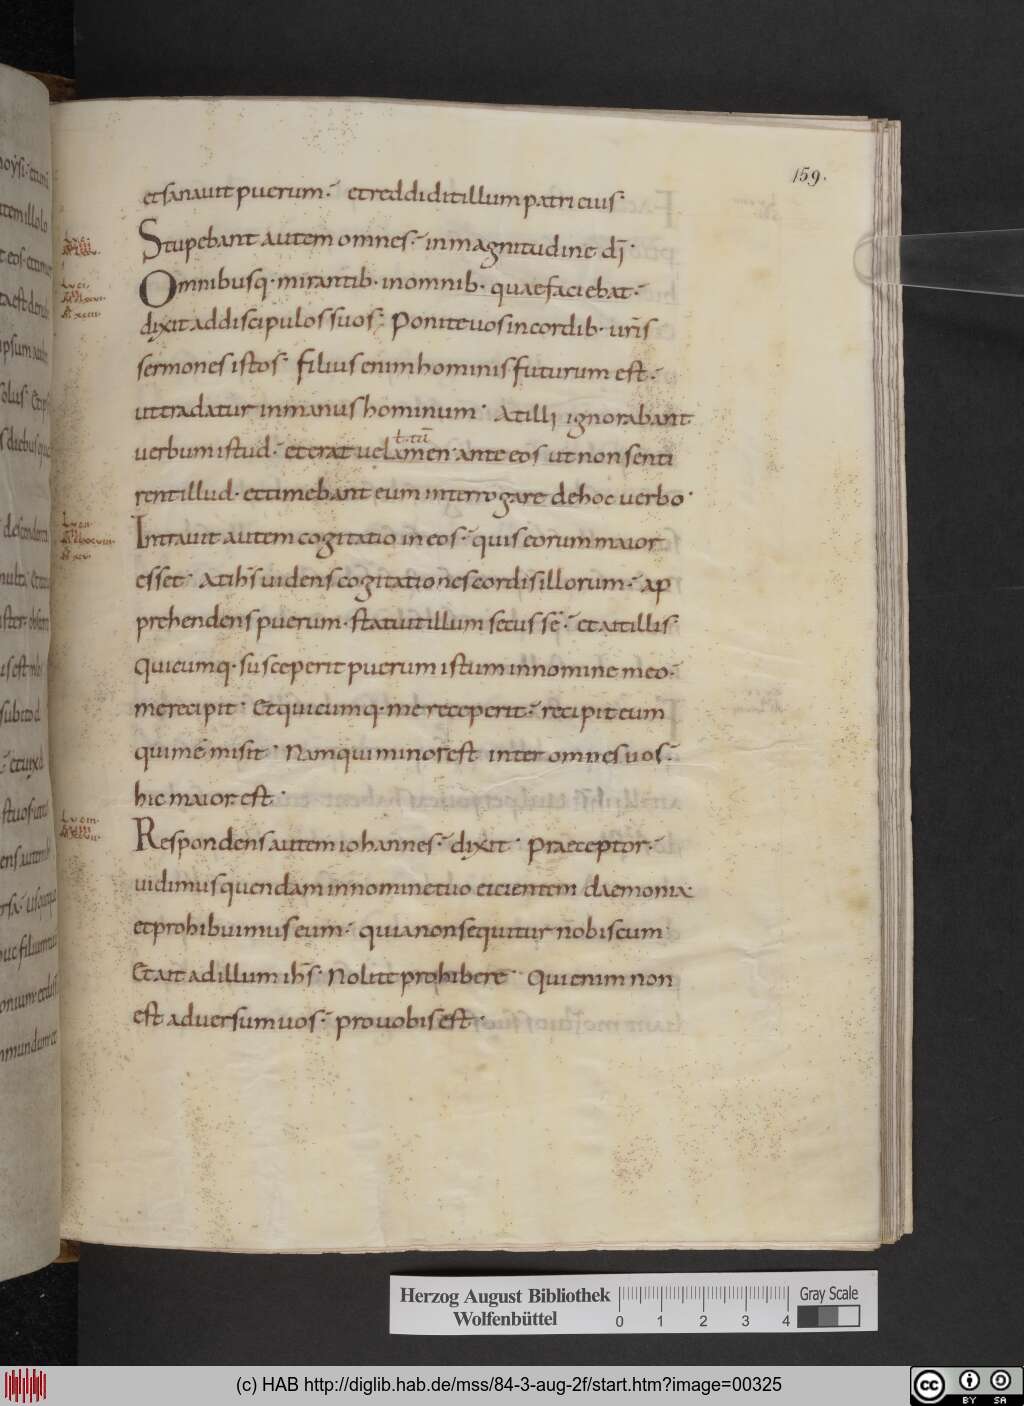 159.
et sanauit puerum· et reddidit illum patri eius·
Stupebant autem omnes· in magnitudine dī·
Omnibusq· mirantib· in omnib· quae faciebat·
dixit ad discipulos suos· Ponite uos in cordib· urīs
sermones istos· filius enim hominis futurum est·
ut tradatur in manus hominum· At illi ignorabant
ł tū
uerbum istud· et erat uelamen ante eos ut non senti
rent illud· et timebant eum interrogare de hoc uerbo·
Intrauit autem cogitatio in eos· quis eorum maior
esset· At ihs̄ uidens cogitationes cordis illorum· ap
prehendens puerum· statuit illum secus sē· et ait illis·
Quicumq· susceperit puerum istum in nomine meo·
me recipit· Et quicumq· me receperit· recipit eum
qui me misit· Nam qui minor est inter omnes uos·
hic maior est·
Respondens autem iohannes· dixit· Praeceptor·
uidimus quendam in nomine tuo eicientem daemonia
et prohibuimus eum· quia non sequitur nobiscum
Et ait ad illum ihs̄· Nolite prohibere· Qui enim non
est aduersum uos· pro uobis est·
Herzog August Bibliothek
Wolfenbüttel
0 1 2 3 4
Gray Scale
(c) HAB http://diglib.hab.de/mss/84-3-aug-2f/start.htm?image=00325
cc BY SA